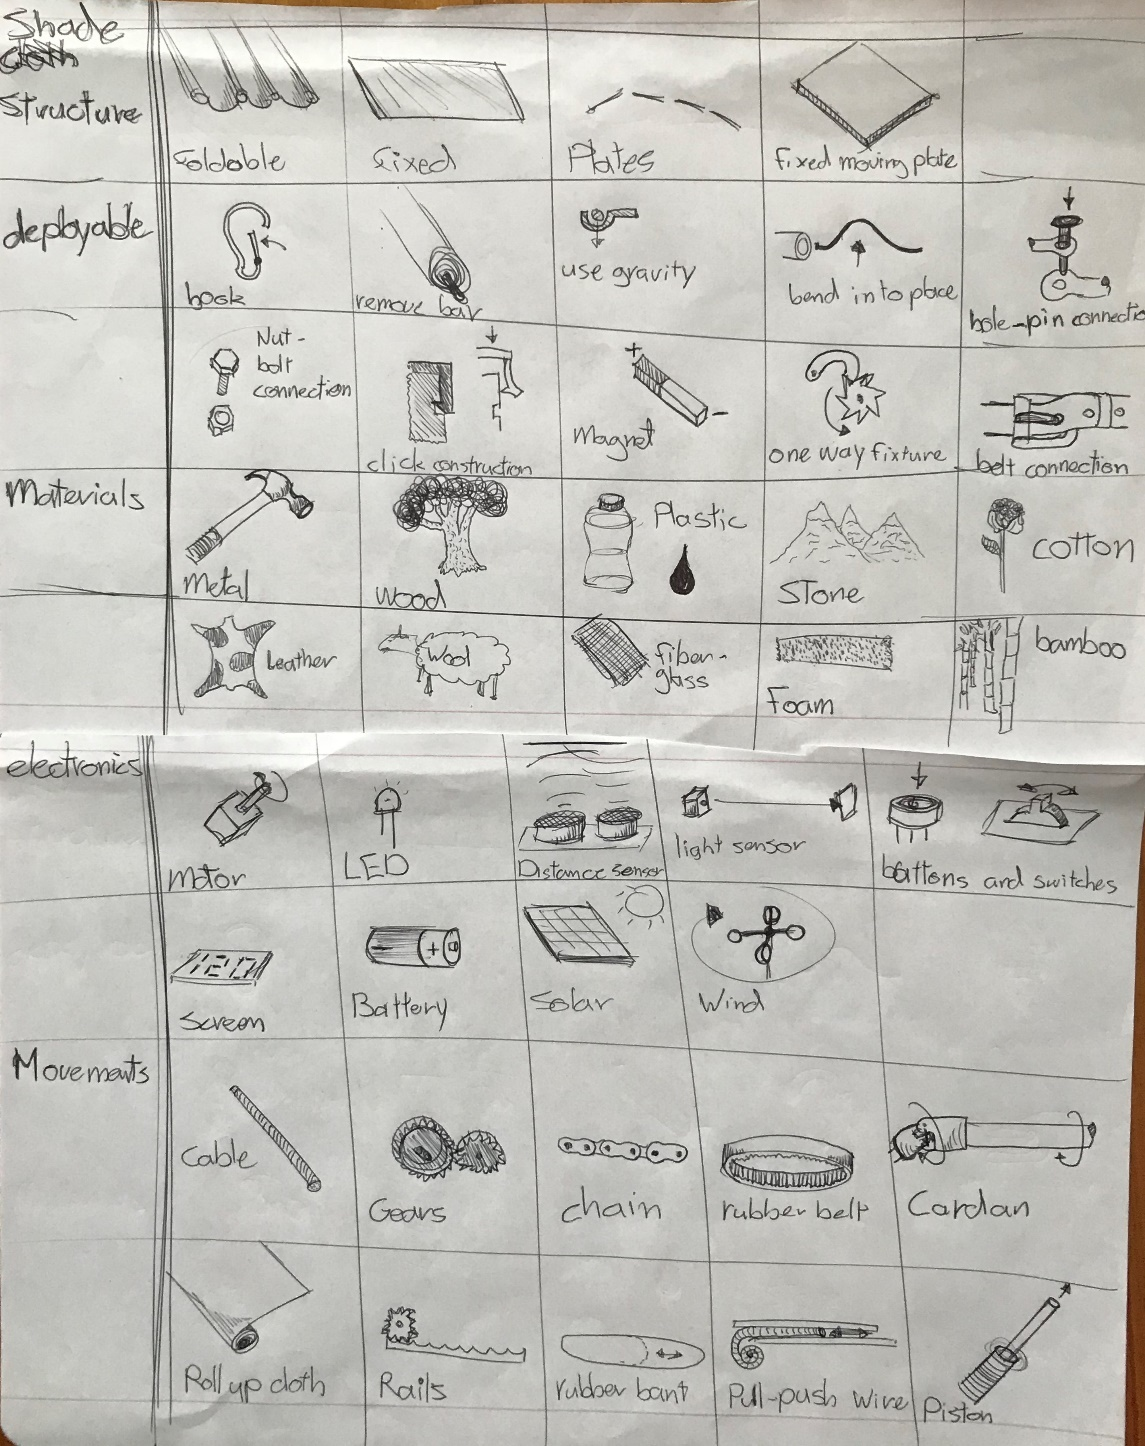 Shade
cloth
Structure
foldable
fixed
Plates
fixed moving plate
deployable
hook
remove bar
use gravity
bend into place
hole-pin connectio
Nut-
bolt
connection
click construction
+
-
Magnet
one way fixture
belt connection
Materials
Metal
wood
Plastic
Stone
cotton
Leather
Wool
fiber-
glass
Foam
bamboo
electronics
Motor
LED
Distance sensor
light sensor
buttons and switches
12:01
Screen
- +
Battery
Solar
Wind
Movements
Cable
Gears
chain
rubber belt
Cardan
Roll up cloth
Rails
rubber bant
Pull-push wire
Piston